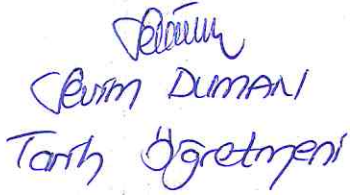 Sevim DUMAN
Tarih Öğretmeni